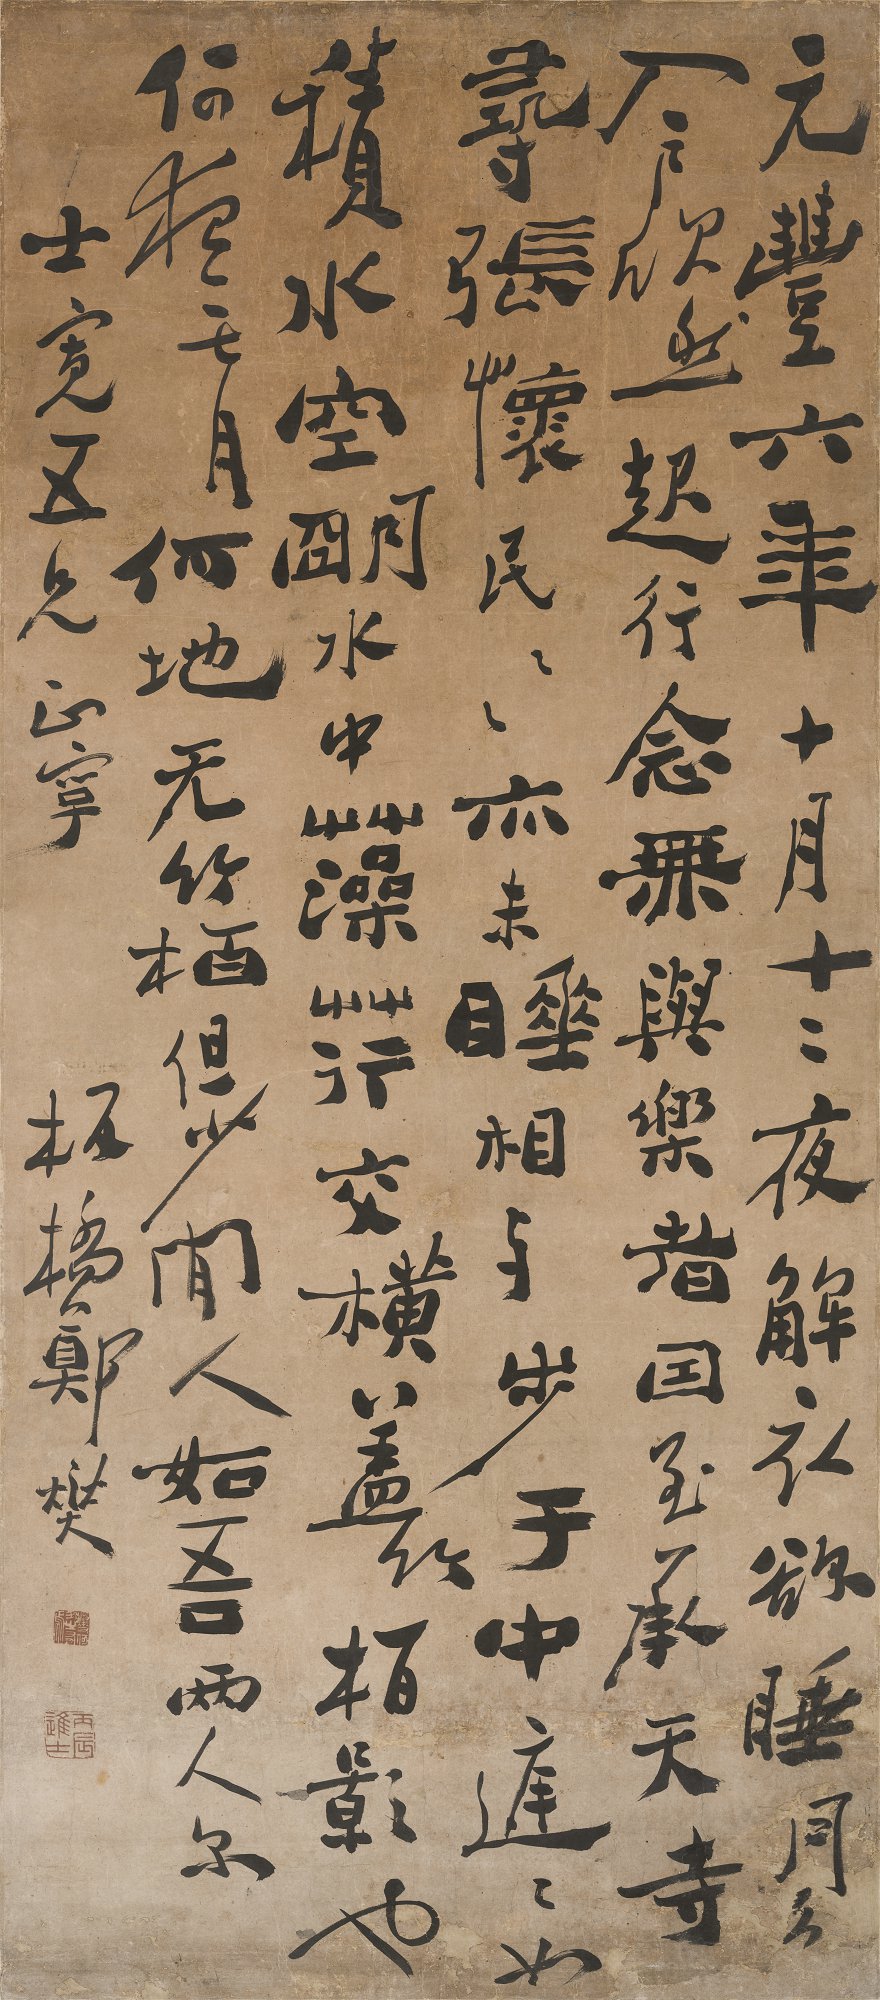 元豐六年十月十二夜解衣欲睡月色
入戶欣然起行念無與樂者因至承天寺
尋張懷民〻〻亦未睡相与步于中庭〻如
積水空明水中藻荇交橫盖竹栢影也
何夜无月何地无竹栢但少閒人如吾兩人尔
士寬五兄正
板橋鄭燮
丙辰進士